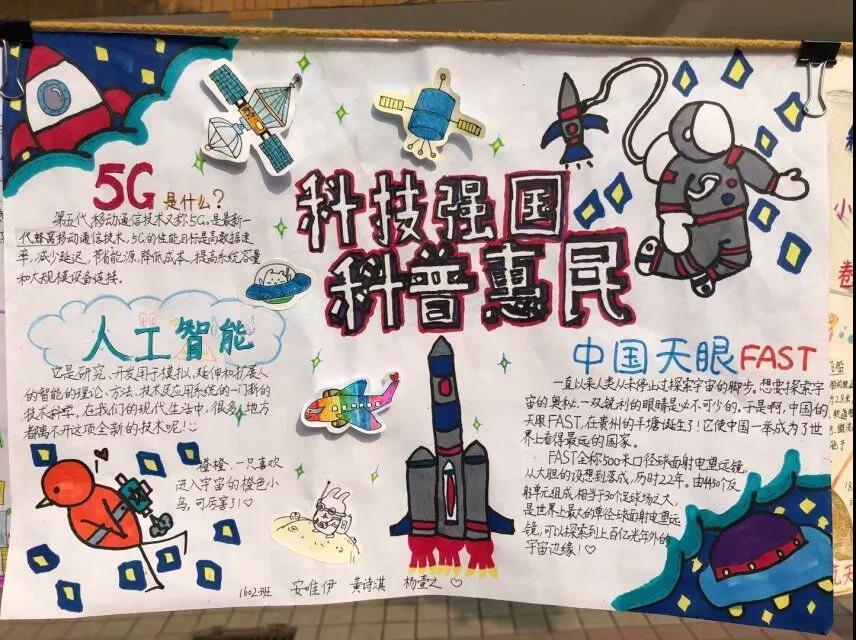 科技强国
科普惠民
5G是什么？
第五代移动通信技术又称5G，是最新一
代蜂窝移动通信技术，5G的性能目标是高数据速
率，减少延迟，节省能源，降低成本，提高系统容量
和大规模设备连接。
人工智能
它是研究、开发用于模拟、延伸和扩展人
的智能的理论、方法、技术及应用系统的一门新的
技术科学，在我们的现代生活中，很多地方
都离不开这项全新的技术呢！
橙橙，一只喜欢
进入宇宙的橙色小
鸟，可厉害了！
中国天眼FAST
一直以来人类从未停止过探索宇宙的脚步。想要探索宇
宙的奥秘，一双锐利的眼睛是必不可少的。于是啊，中国的
天眼FAST，在贵州的平塘诞生了！它使中国一举成为了世
界上看得最远的国家。
FAST全称500米口径球面射电望远镜，
从大胆的设想到落成，历时22年。由4450个反
射单元组成，相当于30个足球场之大，
是世界上最大的单径球面射电望远
镜，可以探索到上百亿光年外的
宇宙边缘！
1602班 安唯伊 黄诗淇 杨萱之